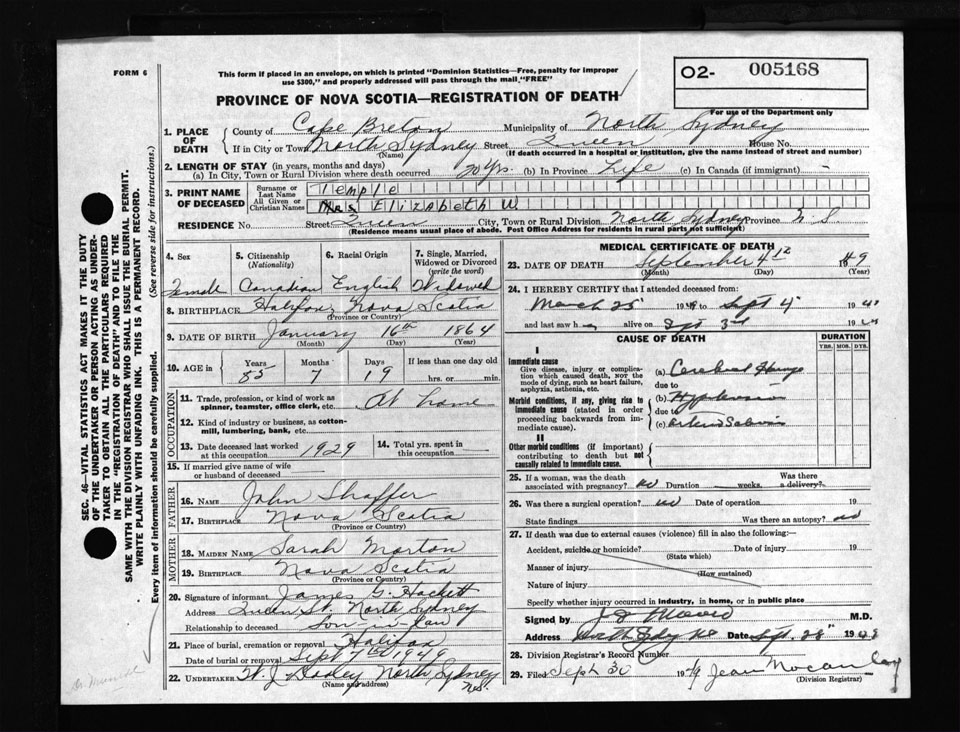 FORM 6
This form if placed in an envelope, on which is printed "Dominion Statistics—Free, penalty for improper
use $300," and properly addressed will pass through the mail, "FREE"
O2- 005168
For use of the Department only
PROVINCE OF NOVA SCOTIA—REGISTRATION OF DEATH
1. PLACE OF DEATH { County of Cape Breton Municipality of North Sydney
If in City or Town North Sydney Street Queen House No.
(Name) (If death occurred in a hospital or institution, give the name instead of street and number)
2. LENGTH OF STAY (in years, months and days)
(a) In City, Town or Rural Division where death occurred 20 Yrs. (b) In Province Life (c) In Canada (if immigrant) -
3. PRINT NAME OF DECEASED { Surname or Last Name Temple
All Given or Christian Names Mrs Elizabeth W
RESIDENCE No. Street Queen City, Town or Rural Division North Sydney Province N. S.
(Residence means usual place of abode. Post Office Address for residents in rural parts not sufficient)
4. Sex
Female
5. Citizenship (Nationality)
Canadian
6. Racial Origin
English
7. Single, Married, Widowed or Divorced (write the word)
Widowed
8. BIRTHPLACE Halifax, Nova Scotia
(Province or Country)
9. DATE OF BIRTH January 16th 1864
(Month) (Day) (Year)
10. AGE in { Years 85 Months 7 Days 19 If less than one day old
hrs. or min.
OCCUPATION
11. Trade, profession, or kind of work as spinner, teamster, office clerk, etc. At home
12. Kind of industry or business, as cotton-mill, lumbering, bank, etc.
13. Date deceased last worked at this occupation 1929
14. Total yrs. spent in this occupation
15. If married give name of wife or husband of deceased
FATHER
16. NAME John Shaffer
17. BIRTHPLACE Nova Scotia
(Province or Country)
MOTHER
18. MAIDEN NAME Sarah Morton
19. BIRTHPLACE Nova Scotia
(Province or Country)
20. Signature of informant James G. Hackett
Address Queen St. North Sydney
Relationship to deceased Son-in-law
21. Place of burial, cremation or removal Halifax
Date of burial or removal Sept 7th 1949
22. UNDERTAKER W. J. Dooley North Sydney N.S.
(Name and address)
MEDICAL CERTIFICATE OF DEATH
23. DATE OF DEATH September 4th 1949
(Month) (Day) (Year)
24. I HEREBY CERTIFY that I attended deceased from:
March 25 1949 to Sept 4 19
and last saw h alive on Sept 3rd 19
CAUSE OF DEATH
DURATION
YRS. MOS. DYS.
I
Immediate cause
Give disease, injury or complication which caused death, NOT the mode of dying, such as heart failure, asphyxia, asthenia, etc.
(a) Cerebral
due to
Morbid conditions, if any, giving rise to immediate cause (stated in order proceeding backwards from immediate cause).
(b) Hypertension
due to
(c)
II
Other morbid conditions (if important) contributing to death but not causally related to immediate cause.
25. If a woman, was the death associated with pregnancy? no Duration weeks. Was there a delivery?
26. Was there a surgical operation? no Date of operation 19
State findings Was there an autopsy? no
27. If death was due to external causes (violence) fill in also the following:—
Accident, suicide or homicide? Date of injury 19
(State which)
Manner of injury
(How sustained)
Nature of injury
Specify whether injury occurred in industry, in home, or in public place
Signed by M.D.
Address North Sydney NS Date Sept. 28 19
28. Division Registrar's Record Number
29. Filed Sept 30 1949 Jean
(Division Registrar)
SEC. 46—VITAL STATISTICS ACT MAKES IT THE DUTY
OF THE UNDERTAKER OR PERSON ACTING AS UNDER-
TAKER TO OBTAIN ALL THE PARTICULARS REQUIRED
IN THE "REGISTRATION OF DEATH" AND TO FILE THE
SAME WITH THE DIVISION REGISTRAR WHO SHALL ISSUE THE BURIAL PERMIT.
WRITE PLAINLY WITH UNFADING INK. THIS IS A PERMANENT RECORD.
Every item of information should be carefully supplied. (See reverse side for instructions.)